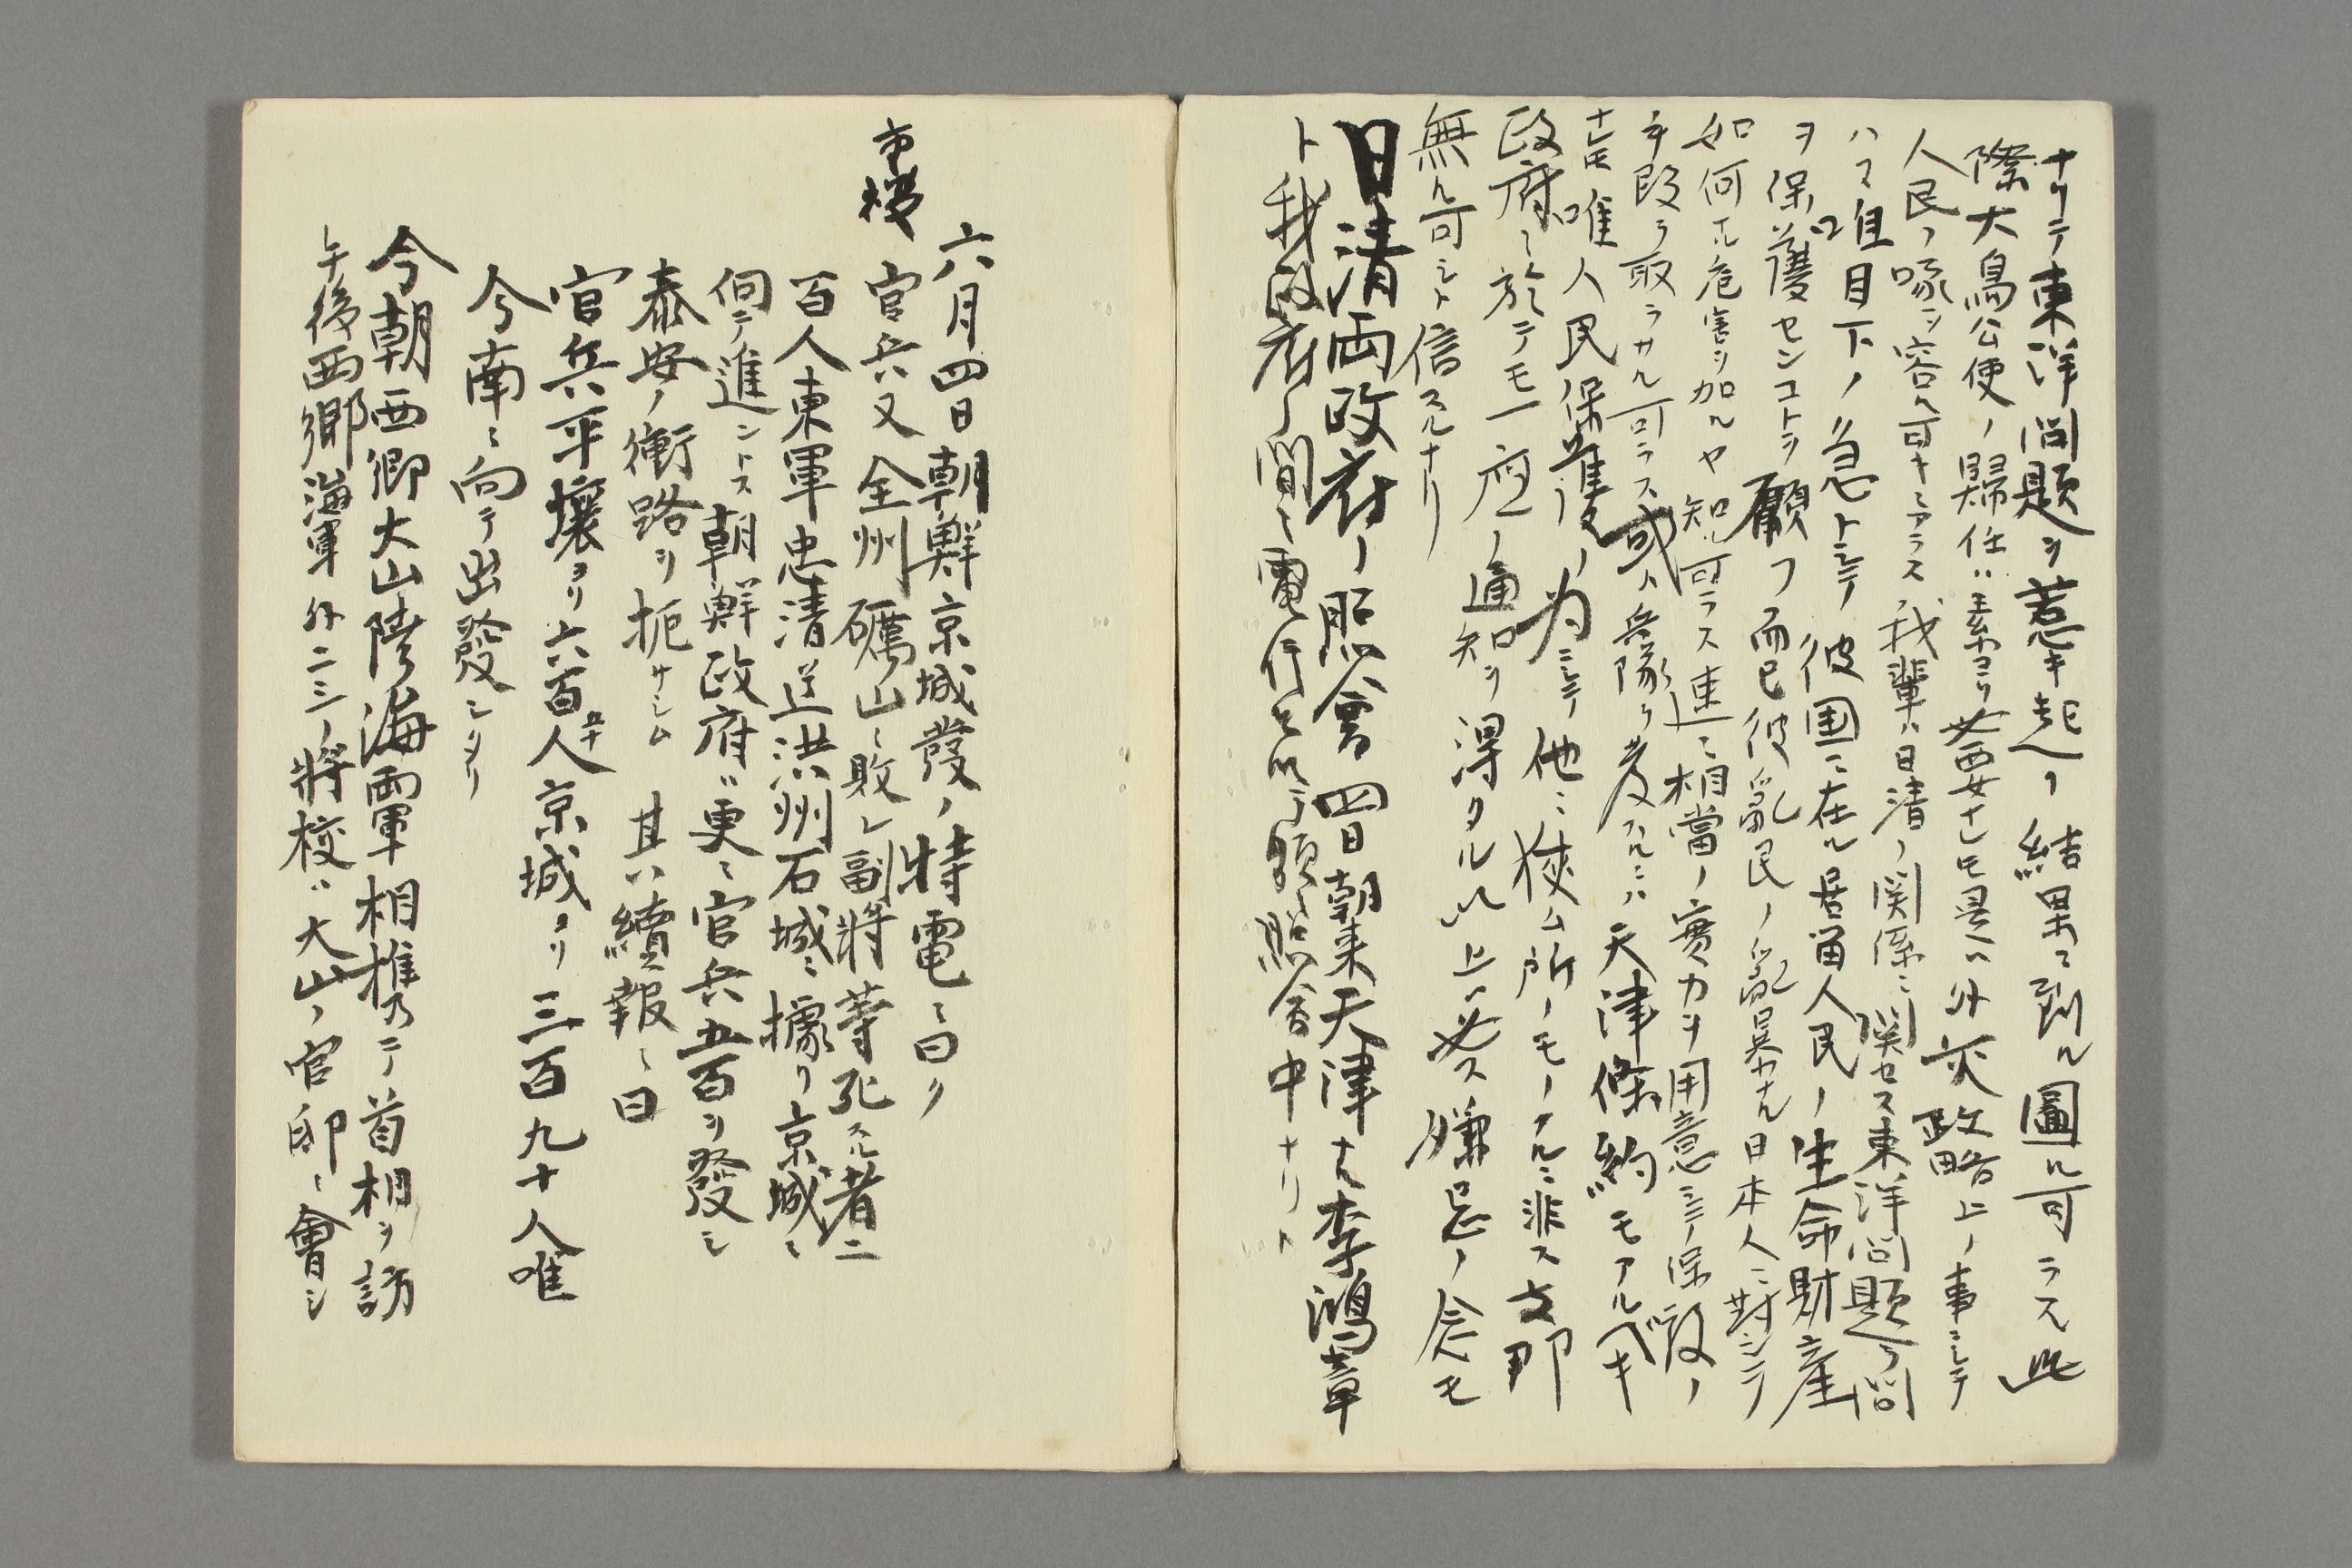 ナリテ東洋問題ヲ惹キ起スノ結果ニ到ル圖ル可ラス此
際大鳥公使ノ歸任ハ素ヨリ必要ナレモ是ハ外交政略上ノ事ニシテ
人民ノ喙ヲ容ル可キニアラス我輩ハ日清ノ関係ニ関セス東洋問題ヲ問
ハス唯目下ノ急トシテ彼国ニ在ル居留人民ノ生命財産
ヲ保護センコトヲ願フ而已彼乱民ノ乱暴ナル日本人ニ對シテ
如何ナル危害ヲ加ルヤ知ル可ラス速ニ相當ノ實力ヲ用意シテ保護ノ
手段ヲ取ラサル可ラス或ハ兵隊ヲ発スルニハ天津條約モアルヘキ
ナレモ唯人民保護ノ為ニシテ他ニ狭ム所ノモノナルニ非ス支那
政府ニ於テモ一應ノ通知ヲ得タル以上ハ必ス嫌忌ノ念モ
無ル可シト信スルナリ
日清両政府ノ照會 四日朝来天津ナル李鴻章
ト我政府ノ間ニ電信ヲ以テ頻ニ照會中ナリト
六月四日朝鮮京城發ノ特電ニ曰ク
官兵又全州礪山ニ敗レ副將等死スル者二
百人東軍忠清道洪州石城ニ據リ京城ニ
向テ進ントス朝鮮政府ハ更ニ官兵五百ヲ發シ
泰安ノ衝路ヲ扼サシム 其ハ續報ニ曰
官兵平壤ヨリ六百五十人京城ヨリ三百九十人唯
今南ニ向テ出發シタリ
今朝西郷大山陸海両軍相携ヘテ首相ヲ訪
午後西郷海軍外二三ノ將校ハ大山ノ官邸ニ會シ